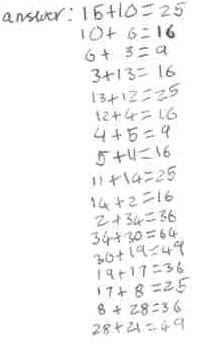 answer: 15+10=25
10+ 6=16
6+ 3=9
3+13= 16
13+12=25
12+4=16
4+5=9
5+11=16
11+14=25
14+2=16
2+34=36
34+30=64
30+19=49
19+17=36
17+ 8=25
8 + 28=36
28+21=49